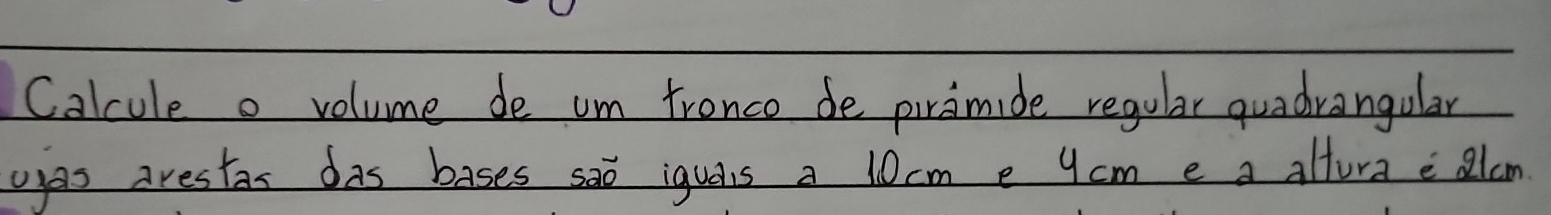 Calcule o volume de um tronco de pirâmide regular quadrangular
ujas arestas das bases são iguais a 10cm e 4cm e a altura é 21cm.